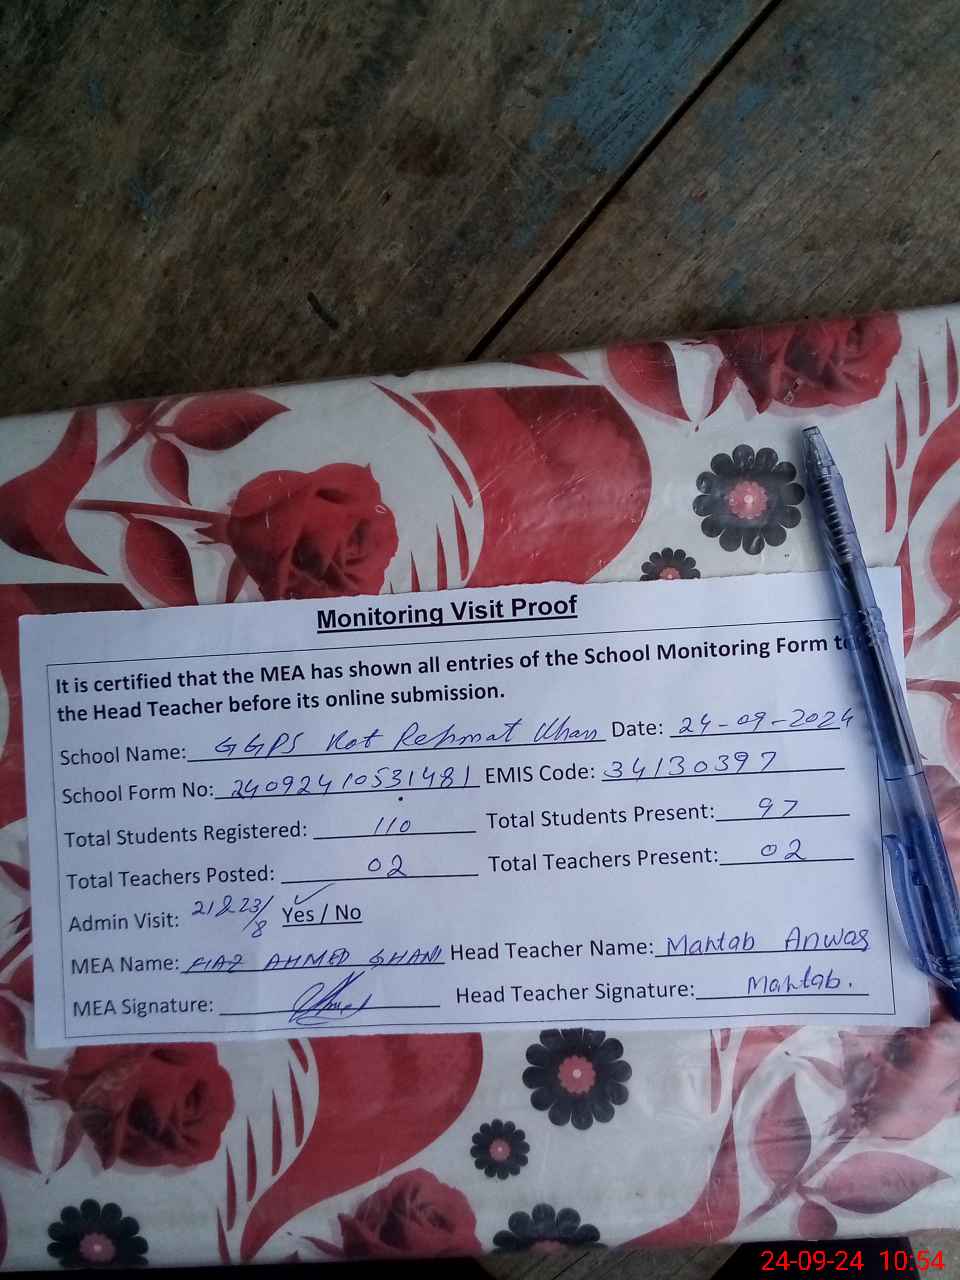 Monitoring Visit Proof
It is certified that the MEA has shown all entries of the School Monitoring Form to
the Head Teacher before its online submission.
School Name: GGPS Kot Rehmat Khan Date: 24-09-2024
School Form No: 24092410531481 EMIS Code: 34130397
Total Students Registered: 110 Total Students Present: 97
Total Teachers Posted: 02 Total Teachers Present: 02
Admin Visit: 21&23/8 Yes / No
MEA Name: FIAZ AHMED GHANI Head Teacher Name: Mahtab Anwar
MEA Signature: Head Teacher Signature: Mahtab.
24-09-24 10:54